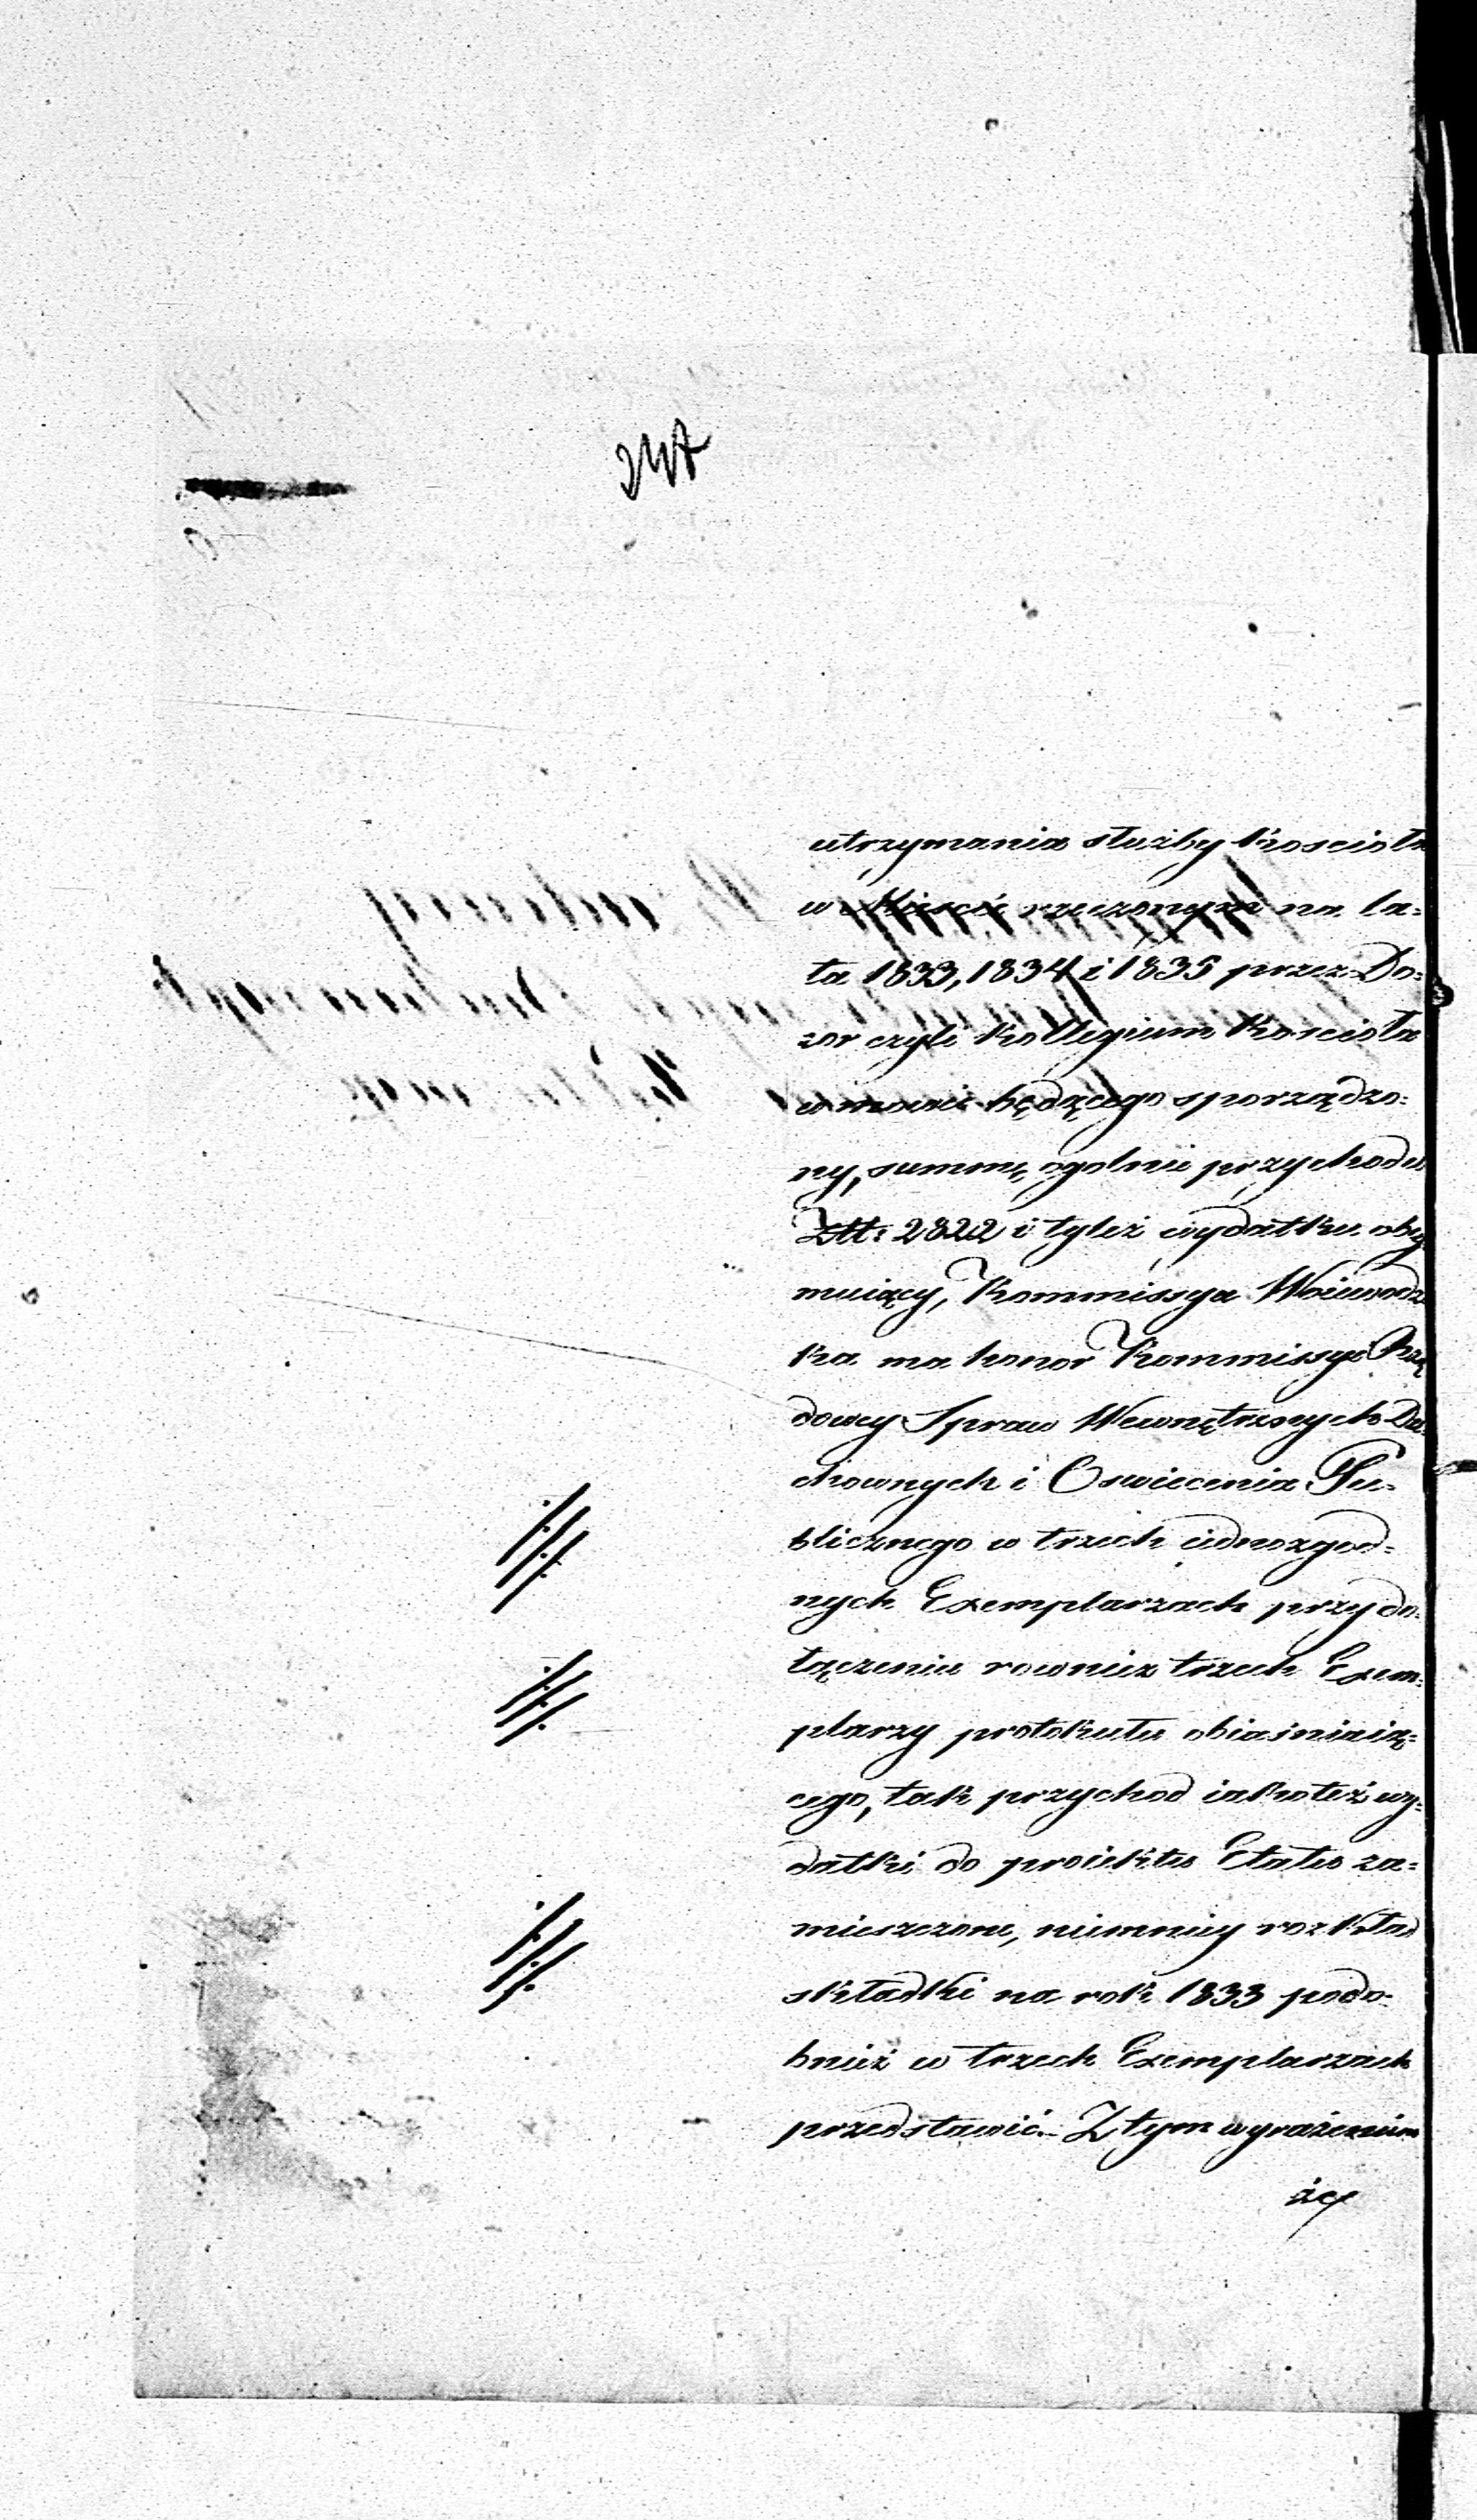 utrzymania służby kościoła
w Mieście rzeczonym na la=
ta 1833, 1834 i 1835 przez Do=
zor czyli Kollegium kościoła
w mowie będącego sporządzo=
ny, summę ogolnie przychodu
Złł: 2822 i tyleż wydatku oby
muiący, Kommissya Woiewodz
ka ma honor Kommissyi Rzą
dowey Spraw Wewnętrznych Du=
chownych i Oswiecenia Pu=
blicznego w trzech iednozgod=
nych Exemplarzach przy do=
łączeniu rownież trzech Exem=
plarzy protokułu obiaśniaią=
cego, tak przychod iakoteż wy=
datki do proiektu Etatu za=
mieszczone, niemniey rozkład
składki na rok 1833 podo=
bnież w trzech Exemplarzach
przedstawić. Z tym wyrażeniem
że